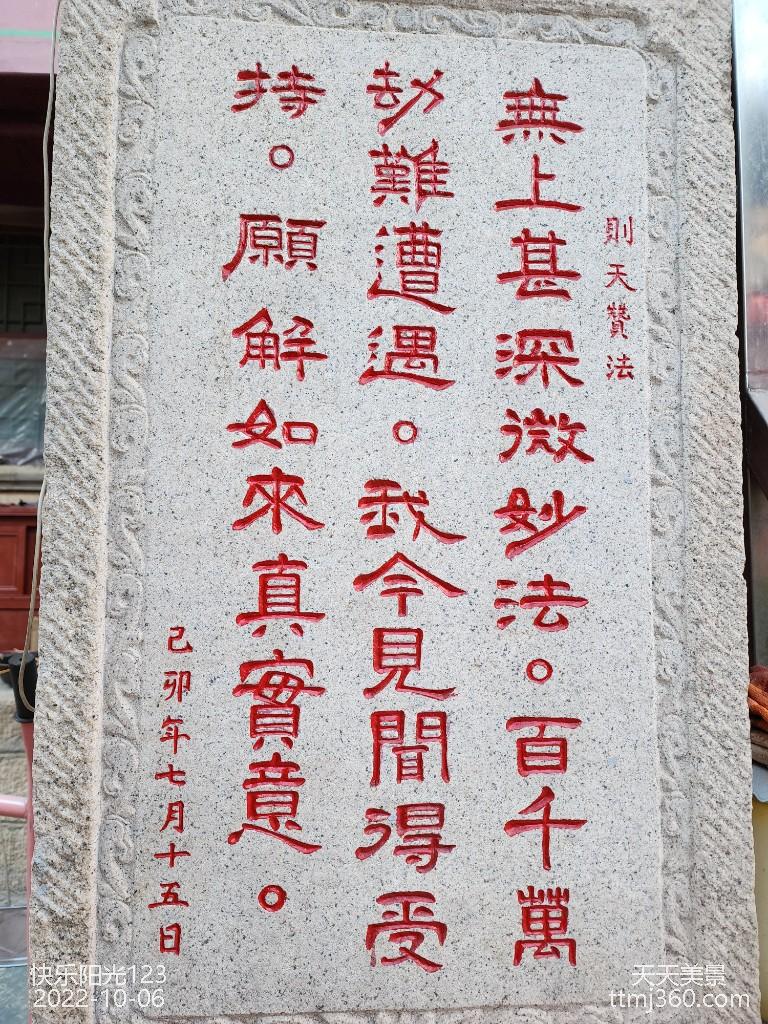 則天贊法
無上甚深微妙法。百千萬
劫難遭遇。我今見聞得受
持。願解如來真實意。
己卯年七月十五日
快乐阳光123
2022-10-06
天天美景
ttmj360.com